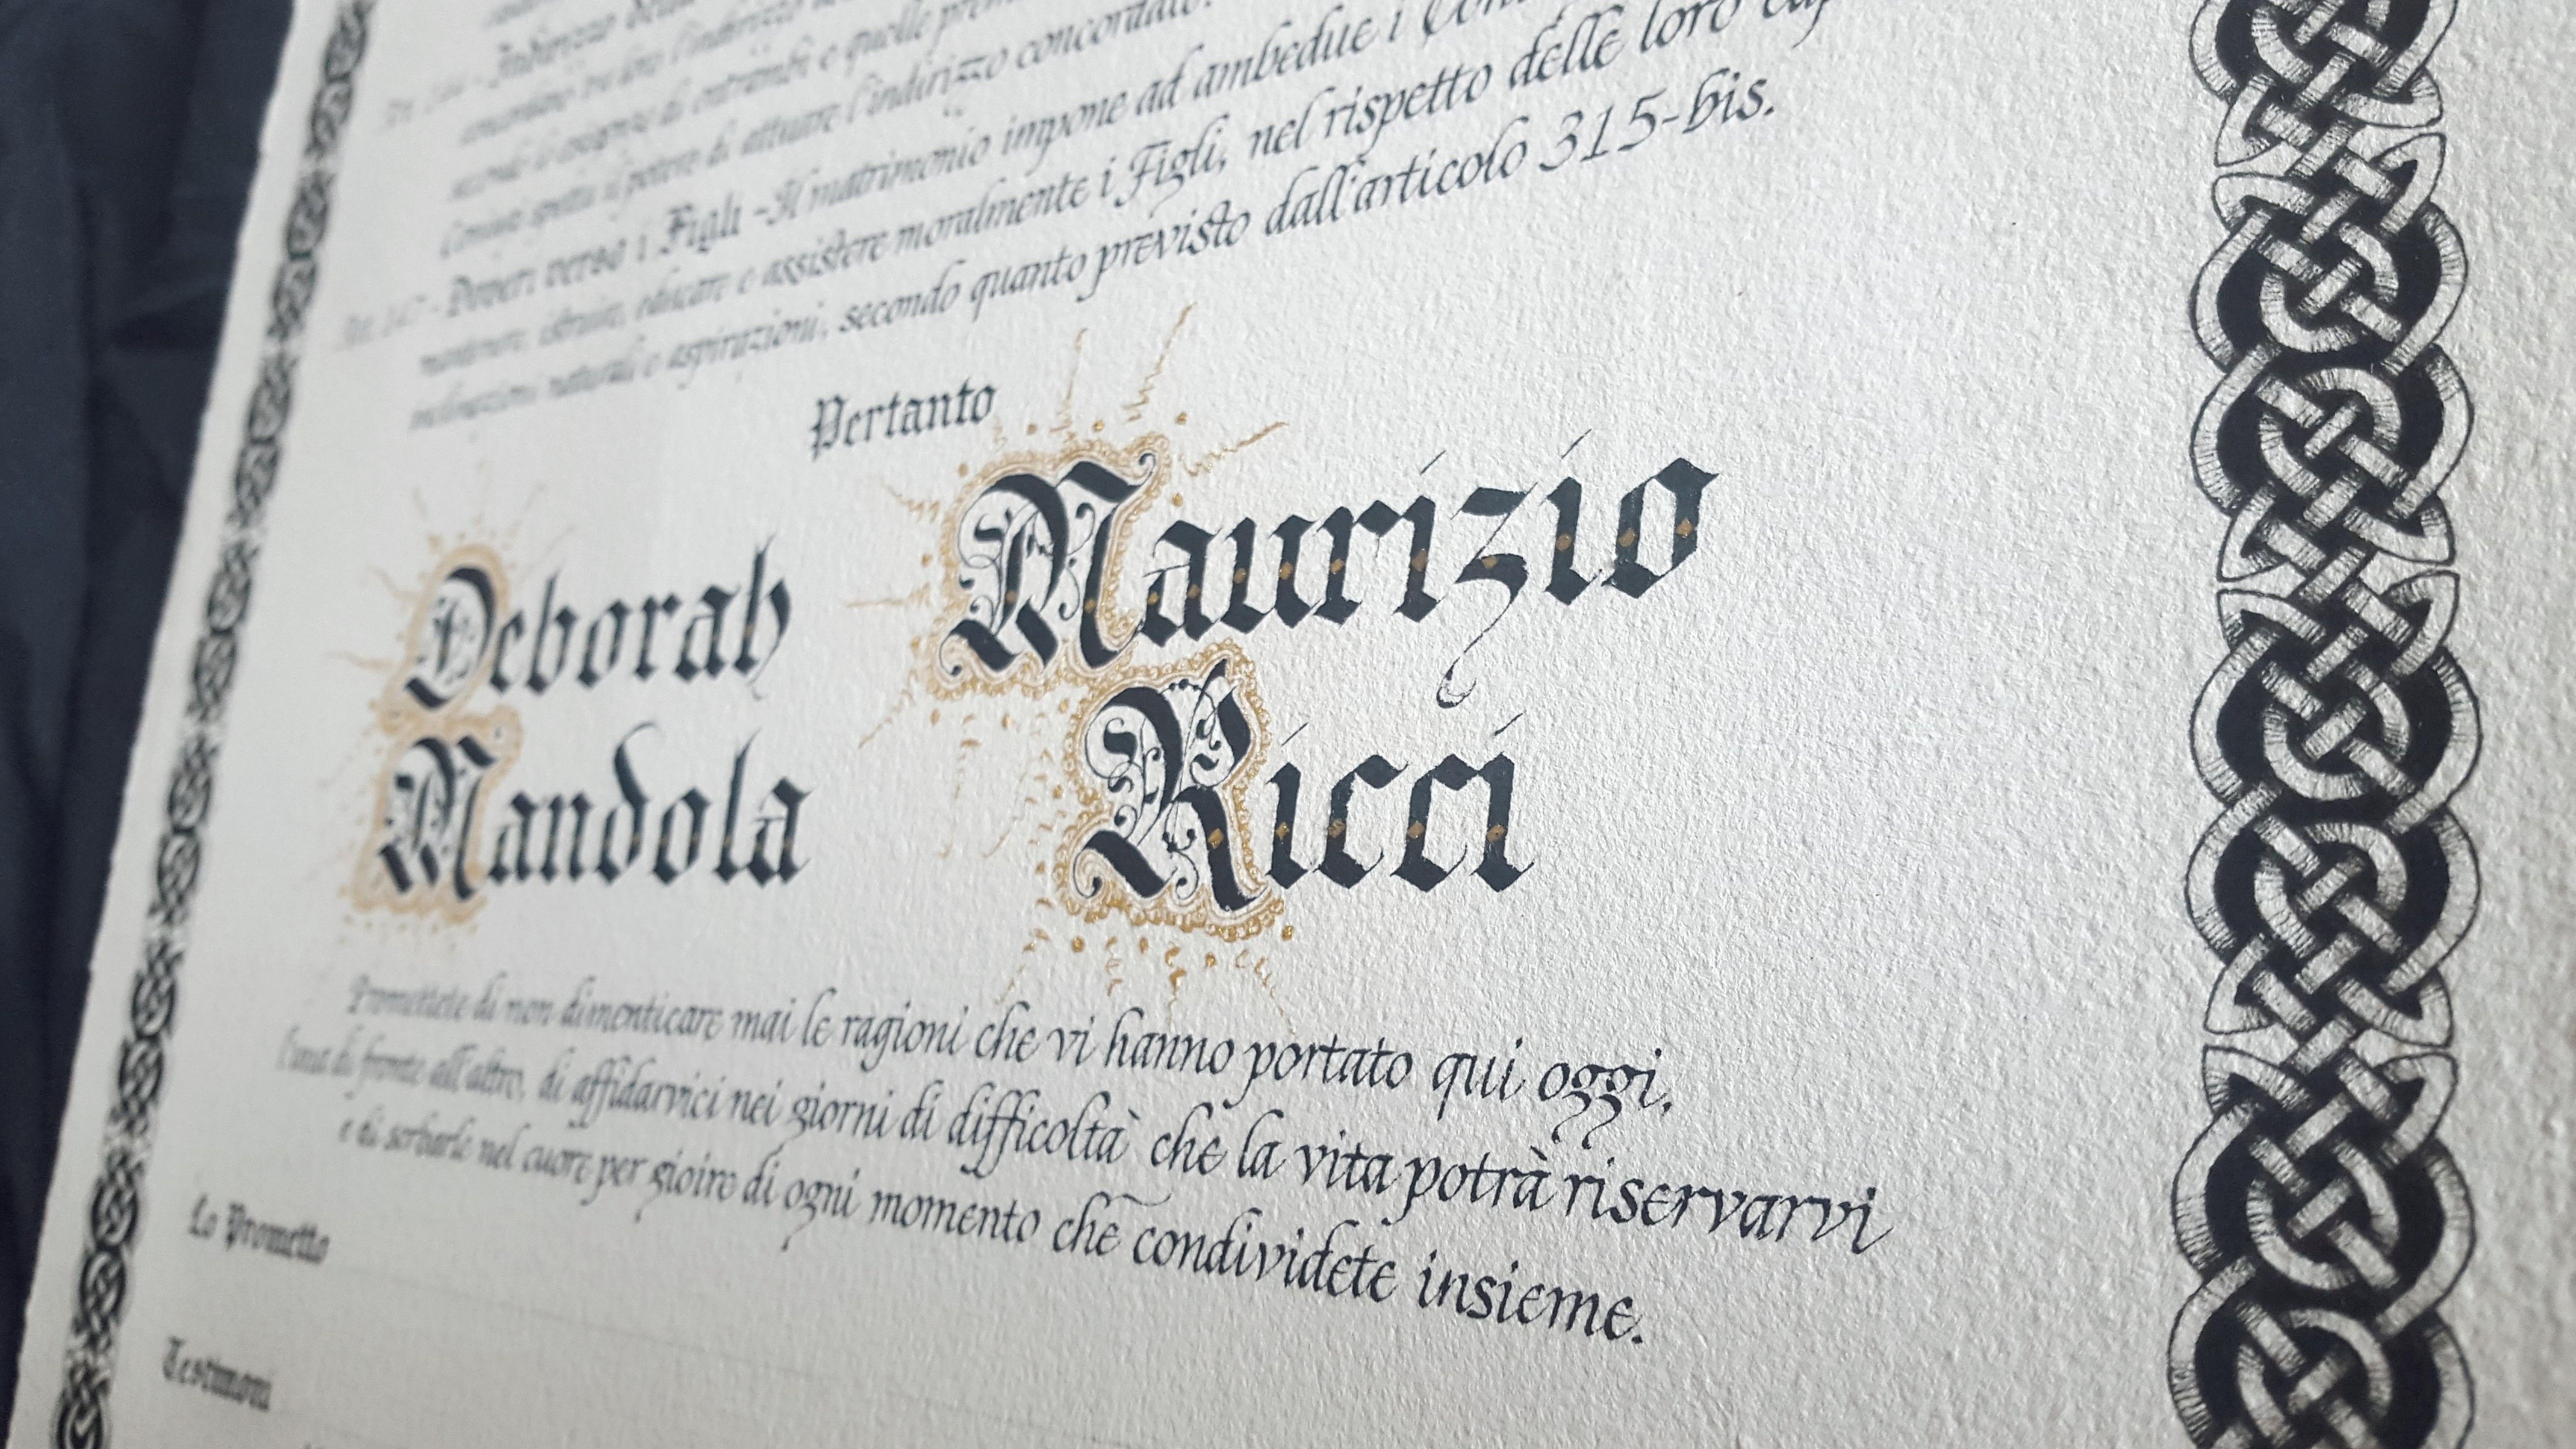 Indirizzo della
l'indirizzo
secondo le esigenze di entrambi e quelle
Coniugi spetta il potere di attuare l'indirizzo concordato.
Art. 147 - Doveri verso i Figli - Il matrimonio impone ad ambedue i
mantenere, istruire, educare e assistere moralmente i Figli, nel rispetto delle loro
inclinazioni naturali e aspirazioni, secondo quanto previsto dall'articolo 315-bis.
Pertanto
Deborah Maurizio
Mandola Ricci
Promettete di non dimenticare mai le ragioni che vi hanno portato qui oggi,
l'una di fronte all'altro, di affidarvici nei giorni di difficoltà che la vita potrà riservarvi
e di serbarle nel cuore per gioire di ogni momento che condividete insieme.
Lo Prometto
Testimoni